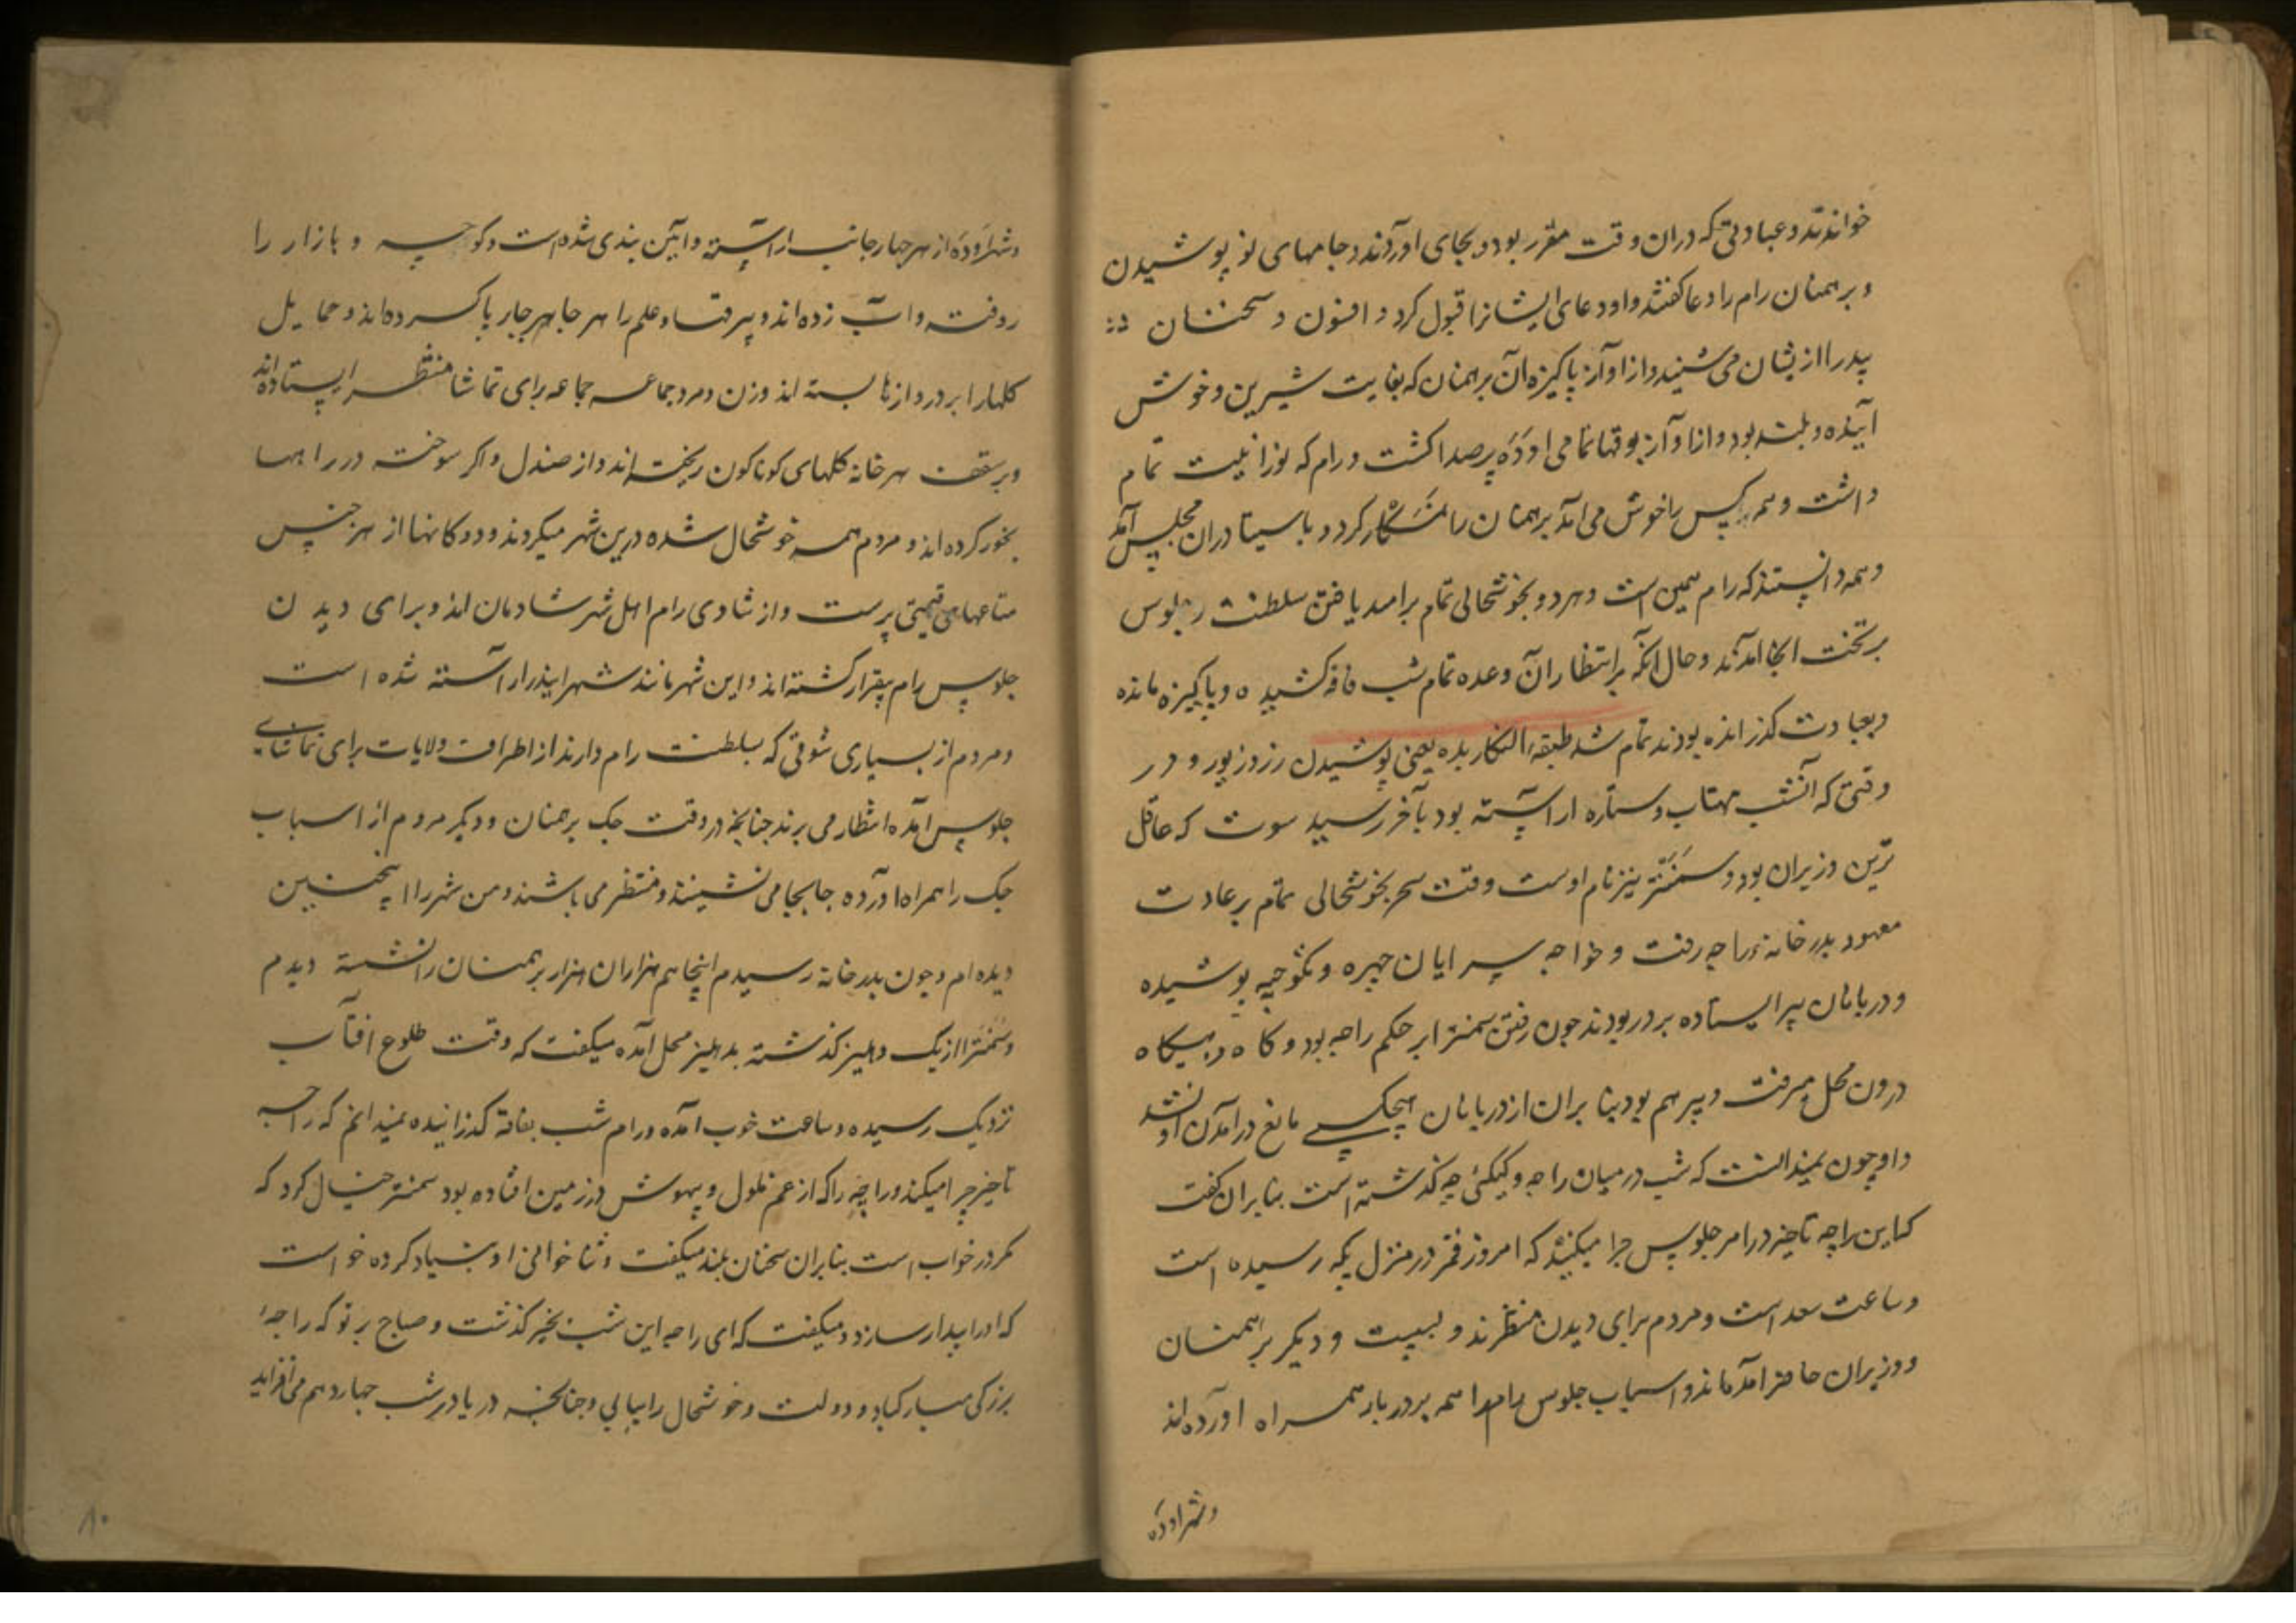 خواندند و عبادتی که دران وقت مقرر بود و بجای اوردند و جامهای نو پوشیدن
و برهمنان رام را دعا کفتند و او دعای ایشانرا قبول کرد و افسون و سخنان
پدر را از یشان می شنید و از اواز پاکیزه آن برهمنان که بغایت شیرین و خوش
آینده و بلند بود و از اواز بوقها تمامی اوده پر صدا کشت و رام که نورانیت تمام
داشت و همه کس را خوش می امد برهمنان را نمسکار کرد و با سیتا دران مجلس آمد
و همه دانستند که رام همین است و هر دو بخوشحالی تمام بر امید یافتن سلطنت و جلوس
بر تخت انجا امدند و حال انکه بر انتظار آن وعده تمام شب فاقه کشیده و پاکیزه مانده
و بعبادت کذرانده بودند تمام شد طبقه النکار بده یعنی پوشیدن زر و زیور و در
وقتی که آنشب مهتاب و ستاره اراسته بود بآخر رسید سوت که عاقل
ترین وزیران بود و سمنتر نیز نام اوست وقت سحر بخوشحالی تمام بر عادت
معهود بدر خانه راجه رفت و خواجه سرایان چیره و نکوچیه پوشیده
و دربانان پیر ایستاده بر در بودند چون رفتن سمنتر ابر حکم راجه بود و کاه و بیکاه
درون محل میرفت و پیر هم بود بنا بران از دربانان هیچکسی مانع درآمدن او نشد
و او چون نمیدانست که شب در میان راجه و کیکئی چه کذشته است بنا بران کفت
که این راجه تاخیر در امر جلوس چرا میکنید که امروز قمر در منزل پکه رسیده است
و ساعت سعد است و مردم برای دیدن منتظرند و بسیت و دیکر برهمنان
و وزیران حاضر آمده اند و اسباب جلوس رام را همه بر دربار همراه اورده اند
و شهر اوده
و شهر اوده از هر چهار جانب اراسته و ایین بندی شده است و کوچه و بازار را
روفته و اب زده اند و بیرقها و علم را هر جا بهر جا بر پا کرده اند و حمایل
کلهارا بر دروازها بسته اند و زن و مرد جماعه جماعه برای تماشا منتظر ایستاده اند
و بر سقف هر خانه کلهای کوناکون ریخته اند و از صندل و اکر سوخته در راهها
بخور کرده اند و مردم همه خوشحال شده درین شهر میکردند و دوکانها از هر جنس
متاعهای قیمتی پرست و از شادی رام اهل شهر شادمان اند و برای دیدن
جلوس رام بیقرار کشته اند و این شهر مانند شهر ایندر اراسته شده است
و مردم از بسیاری شوقی که بسلطنت رام دارند از اطراف ولایات برای تماشای
جلوس آمده انتظار می برند چنانچه در وقت جک برهمنان و دیکر مردم از اسباب
جک را همراه اورده جابجا می نشینند و منتظر می باشند و من شهر را اینچنین
دیده ام و چون بدر خانه رسیدم اینجا هم هزاران هزار برهمنان را نشسته دیدم
و سمنتر از یک دهلیز کذشته بدهلیز محل آمده میکفت که وقت طلوع افتاب
نزدیک رسیده و ساعت خوب آمده و رام شب بفاقه کذرانیده نمیدانم که راجه
تاخیر چرا میکند و راجه را که از غم ملول و بیهوش در زمین افتاده بود سمنتر خیال کرد که
مکر در خواب است بنا بران سخنان بلند میکفت و ثنا خوانی او بنیاد کرده خواست
که او را بیدار سازد و میکفت که ای راجه این شب بخیر کذشت و صباح بر تو که راجه
بزرکی مبارکباد و دولت و خوشحال را بیابی و چنانچه دریا در شب چهاردهم می افزاید
۸۰